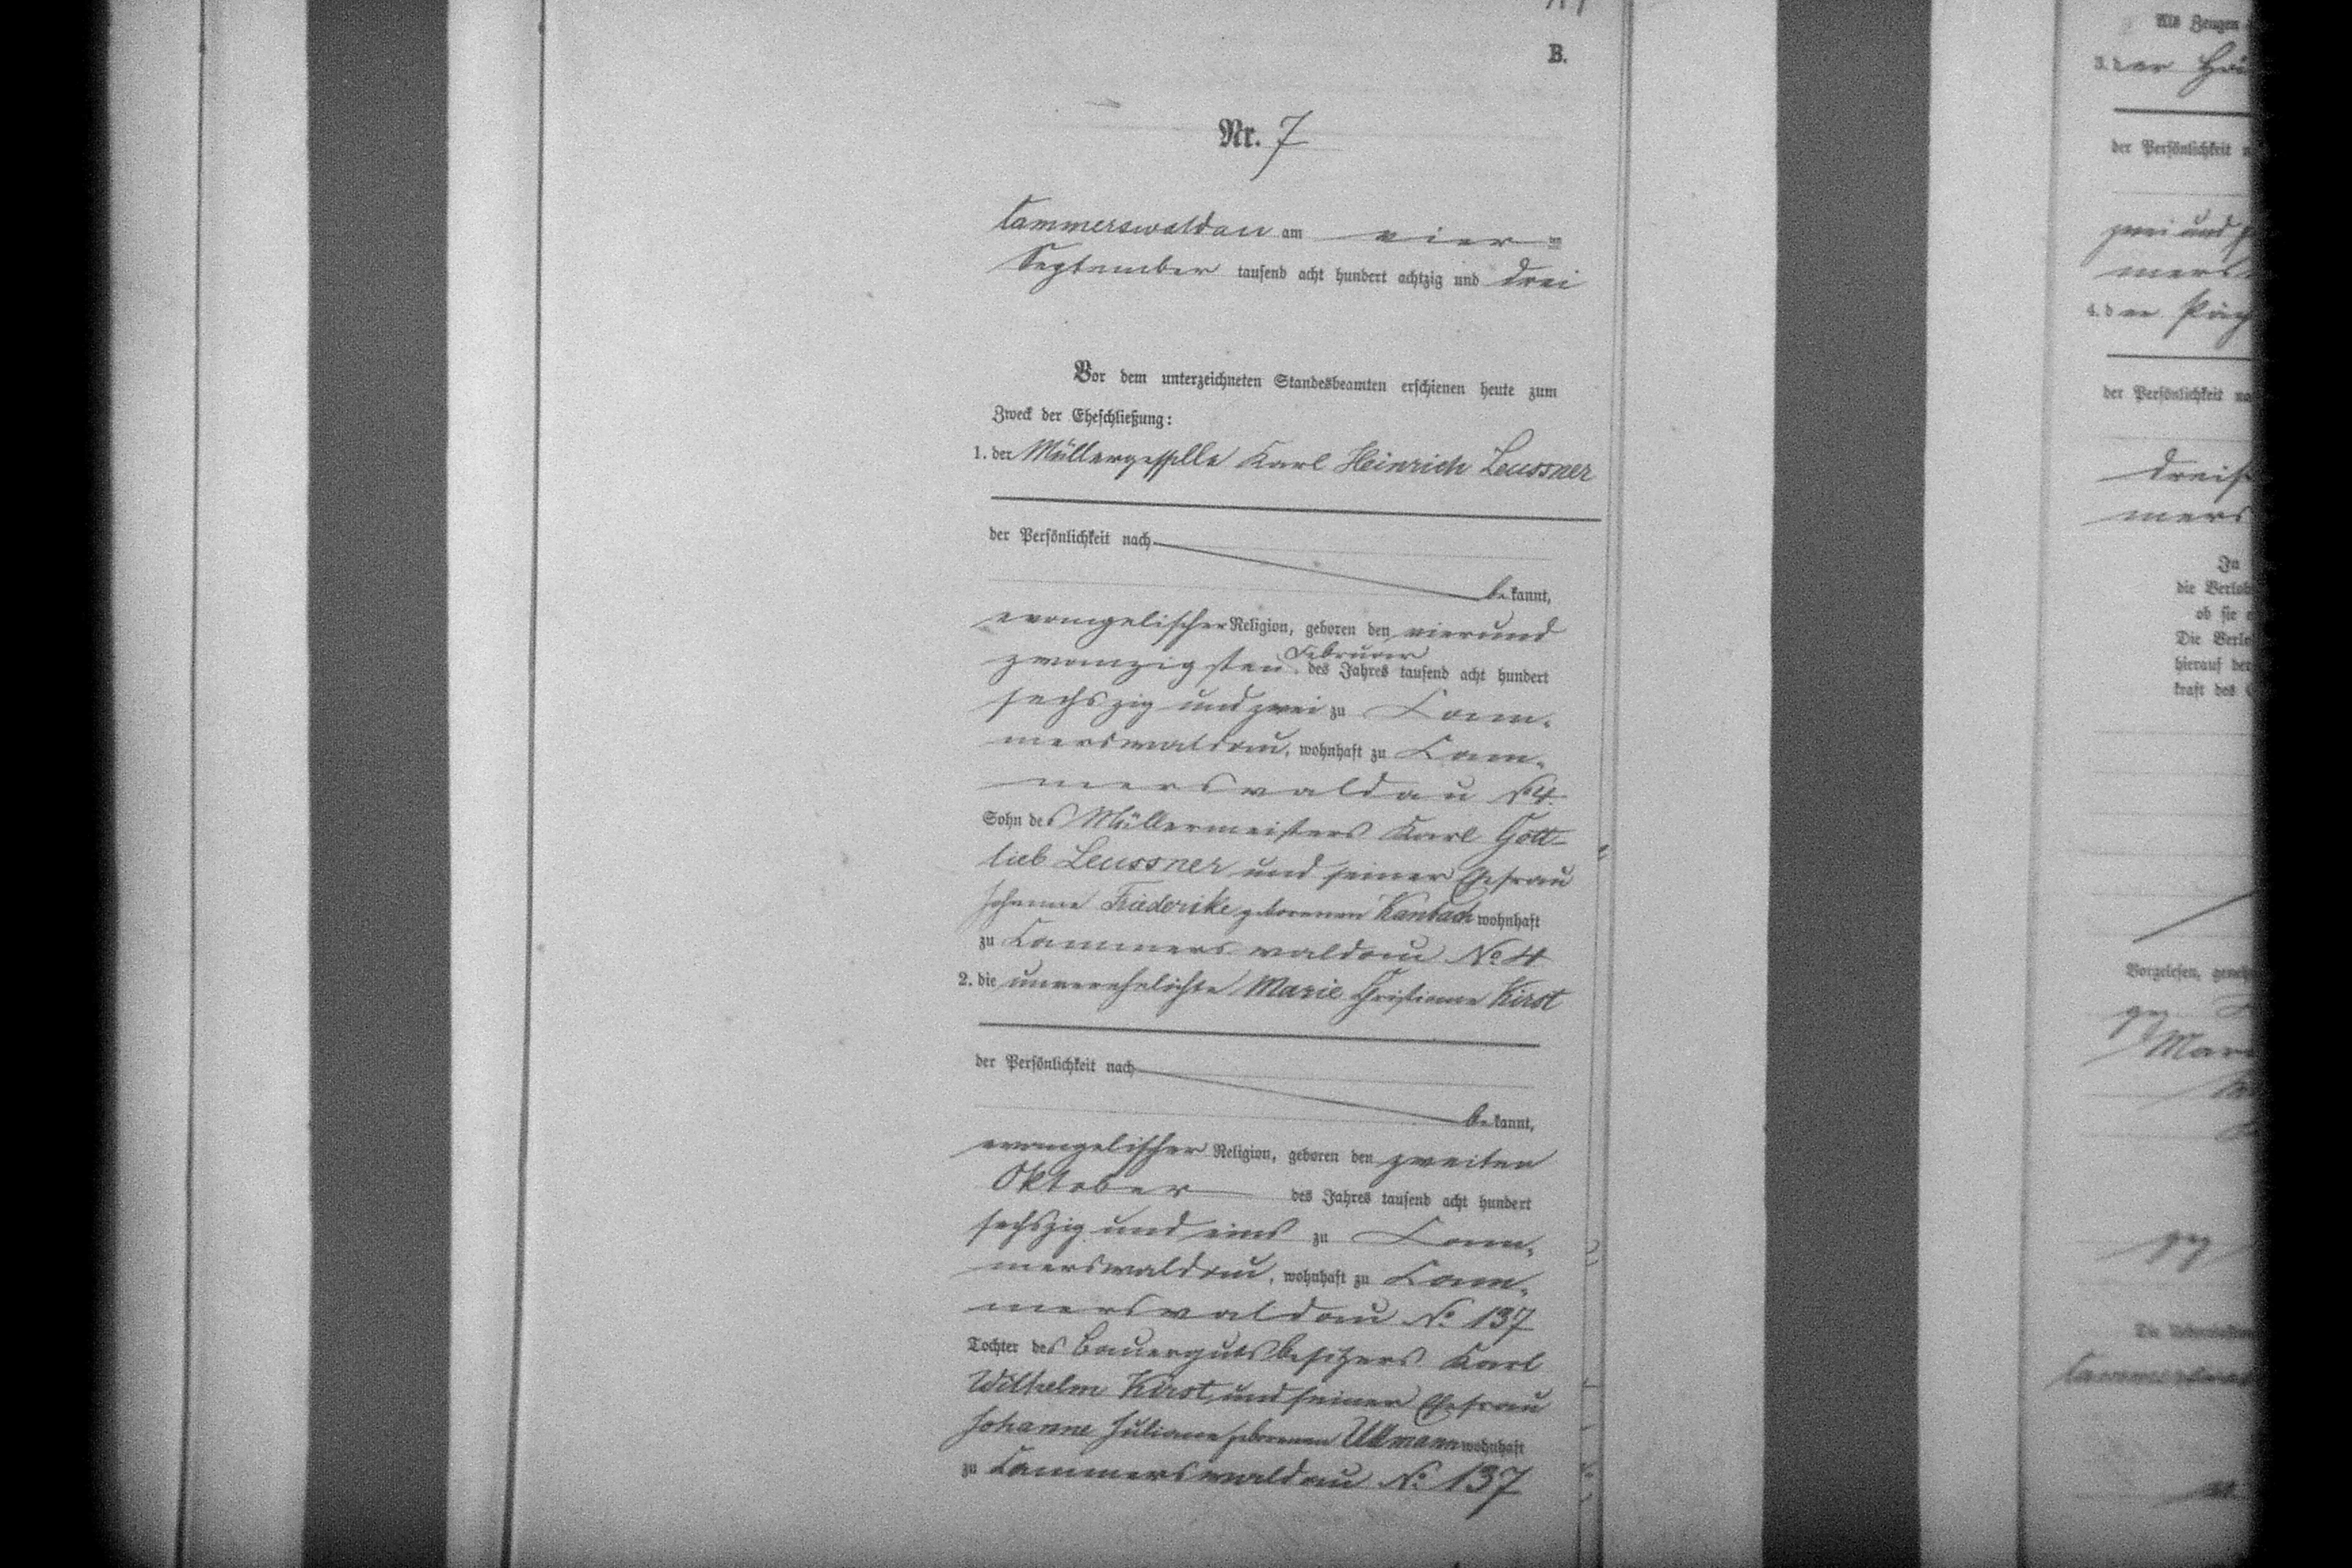 B.
Nr. 7
Cammerswaldau am vier ten
September tausend acht hundert achtzig und drei
Vor dem unterzeichneten Standesbeamten erschienen heute zum
Zweck der Eheschließung:
1. der Müllergeselle Karl Heinrich Leussner
der Persönlichkeit nach
be kannt,
evangelischer Religion, geboren den vierund
zwanzigsten Februar des Jahres tausend acht hundert
sechszig und zwei zu Cam-
merswaldau, wohnhaft zu Cam-
merswaldau No 4.
Sohn des Müllermeisters Karl Gott-
lieb Leussner und seiner Ehefrau
Johanne Friederike geborenen Kambach wohnhaft
zu Cammerswaldau No 4
2. die unverehelichte Marie Christiane Kirst
der Persönlichkeit nach
be kannt,
evangelischer Religion, geboren den zweiten
Oktober des Jahres tausend acht hundert
sechszig und eins zu Cam-
merswaldau, wohnhaft zu Cam-
merswaldau No 137
Tochter des Bauergutsbesitzers Karl
Wilhelm Kirst und seiner Ehefrau
Johanne Juliane geborenen Ullmann wohnhaft
zu Cammerswaldau No 137
Als Zeugen
3. der
der Persönlichkeit
zwei und
mers
4. der
der Persönlichkeit
dreis
mers
In
die Verlob
ob sie
Die Verlo
hierauf der
kraft des
Vorgelesen,
Mari